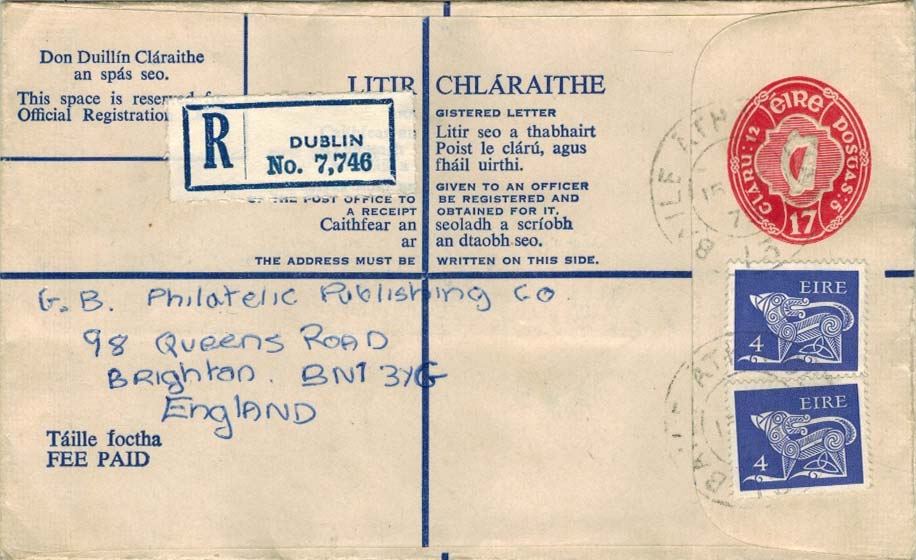 Don Duillín Cláraithe
an spás seo.
This space is reserved for
Official Registration
LITIR CHLÁRAITHE
R
DUBLIN
No. 7,746
GISTERED LETTER
Litir seo a thabhairt
Poist le clárú, agus
fháil uirthi.
OF THE POST OFFICE TO
A RECEIPT
Caithfear an
ar
THE ADDRESS MUST BE
GIVEN TO AN OFFICER
BE REGISTERED AND
OBTAINED FOR IT.
seoladh a scríobh
an dtaobh seo.
WRITTEN ON THIS SIDE.
ÉIRE
CLÁRÚ: 12
POSTAS: 5
17
BAILE ÁTH
EIRE
4
EIRE
4
G.B. Philatelic Publishing Co.
98 Queens Road
Brighton. BN1 3YG
England
Táille íoctha
FEE PAID